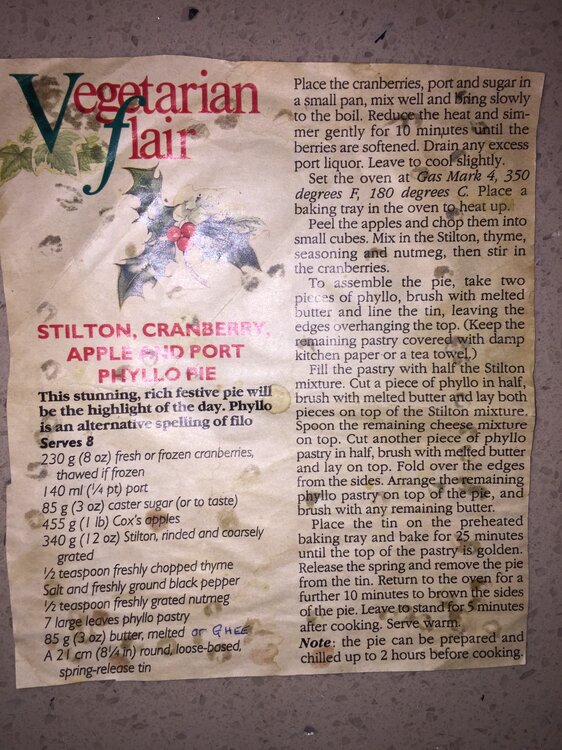 Vegetarian
flair
STILTON, CRANBERRY,
APPLE AND PORT
PHYLLO PIE
This stunning, rich festive pie will
be the highlight of the day. Phyllo
is an alternative spelling of filo
Serves 8
230 g (8 oz) fresh or frozen cranberries,
thawed if frozen
140 ml (¼ pt) port
85 g (3 oz) caster sugar (or to taste)
455 g (1 lb) Cox's apples
340 g (12 oz) Stilton, rinded and coarsely
grated
½ teaspoon freshly chopped thyme
Salt and freshly ground black pepper
½ teaspoon freshly grated nutmeg
7 large leaves phyllo pastry
85 g (3 oz) butter, melted or GHEE
A 21 cm (8¼ in) round, loose-based,
spring-release tin
Place the cranberries, port and sugar in
a small pan, mix well and bring slowly
to the boil. Reduce the heat and sim-
mer gently for 10 minutes until the
berries are softened. Drain any excess
port liquor. Leave to cool slightly.
Set the oven at Gas Mark 4, 350
degrees F, 180 degrees C. Place a
baking tray in the oven to heat up.
Peel the apples and chop them into
small cubes. Mix in the Stilton, thyme,
seasoning and nutmeg, then stir in
the cranberries.
To assemble the pie, take two
pieces of phyllo, brush with melted
butter and line the tin, leaving the
edges overhanging the top. (Keep the
remaining pastry covered with damp
kitchen paper or a tea towel.)
Fill the pastry with half the Stilton
mixture. Cut a piece of phyllo in half,
brush with melted butter and lay both
pieces on top of the Stilton mixture.
Spoon the remaining cheese mixture
on top. Cut another piece of phyllo
pastry in half, brush with melted butter
and lay on top. Fold over the edges
from the sides. Arrange the remaining
phyllo pastry on top of the pie, and
brush with any remaining butter.
Place the tin on the preheated
baking tray and bake for 25 minutes
until the top of the pastry is golden.
Release the spring and remove the pie
from the tin. Return to the oven for a
further 10 minutes to brown the sides
of the pie. Leave to stand for 5 minutes
after cooking. Serve warm.
Note: the pie can be prepared and
chilled up to 2 hours before cooking.